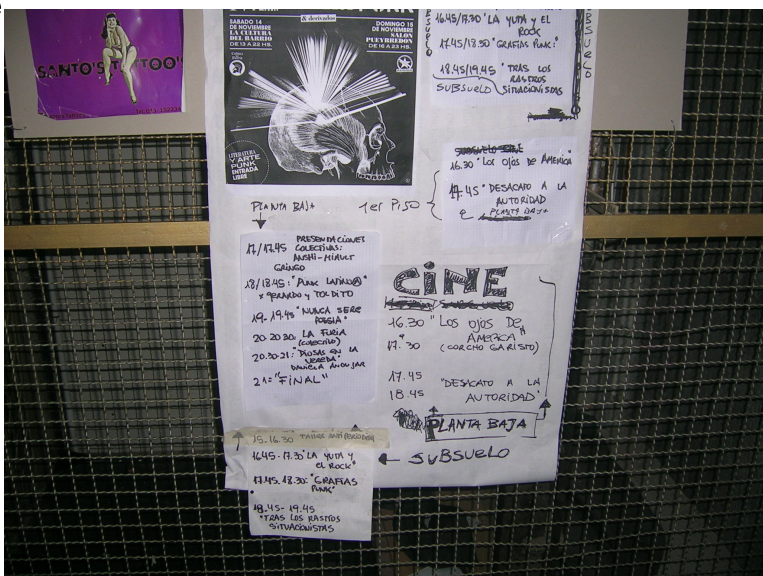 SANTO'S TATTOO'S
& derivados
SABADO 14
DE NOVIEMBRE
LA CULTURA
DEL BARRIO
DE 13 A 22 HS.
DOMINGO 15
DE NOVIEMBRE
SALON
PUEYRREDON
DE 16 A 23 HS.
LITERATURA
Y ARTE
PUNK
ENTRADA
LIBRE
16.45/17.30 "LA YUTA Y EL
ROCK
17.45/18.30 "GRAFIAS PUNK:"
18.45/19.45 "TRAS LOS
RASTROS
SUBSUELO SITUACIONISTAS
SUBSUELO
16.30 "LOS OJOS DE AMERICA"
17.45 "DESACATO A LA
AUTORIDAD
PLANTA BAJA
1er PISO
PLANTA BAJA
17/17.45 PRESENTACIONES
COLECTIVAS:
GRINGO
18/18.45: "PUNK LATINO@"
x GERARDO y TOLDITO
19-19.45 "NUNCA SERE
POESIA"
20-20.30: LA FURIA
(COLECTIVO)
20.30-21: "DIOSAS EN LA
VEREDA"
21="FINAL"
CINE
16.30 "LOS OJOS DE
AMERICA"
17.30 (CORCHO GARISTO)
17.45
18.45 "DESACATO A LA
AUTORIDAD"
PLANTA BAJA
SUBSUELO
15.16.30
16.45-17.30 "LA YUTA Y
EL ROCK"
17.45.18.30: "GRAFIAS
PUNK"
18.45-19.45
"TRAS LOS RASTROS
SITUACIONISTAS